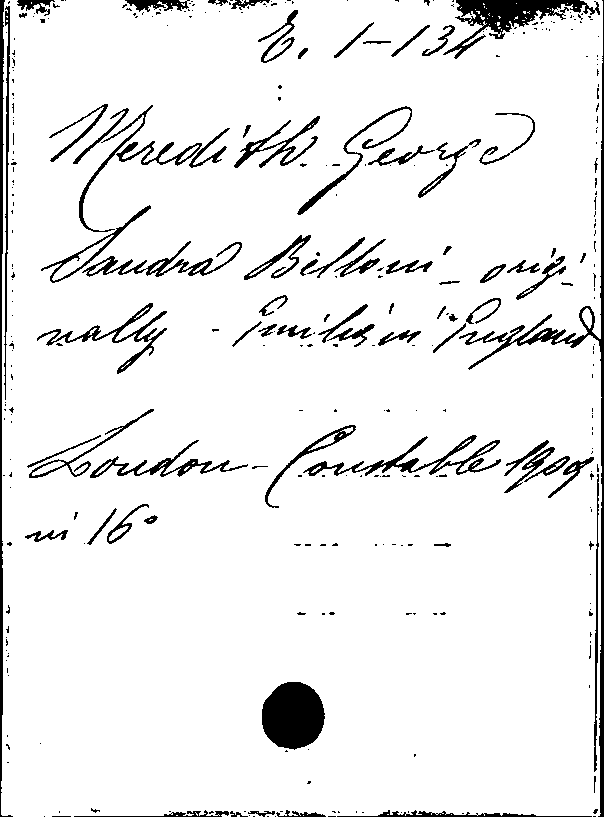 E. 1-134
Meredith George
Sandra Belloni - origi-
nally - Emilia in England
London - Constable 1909
in 16°